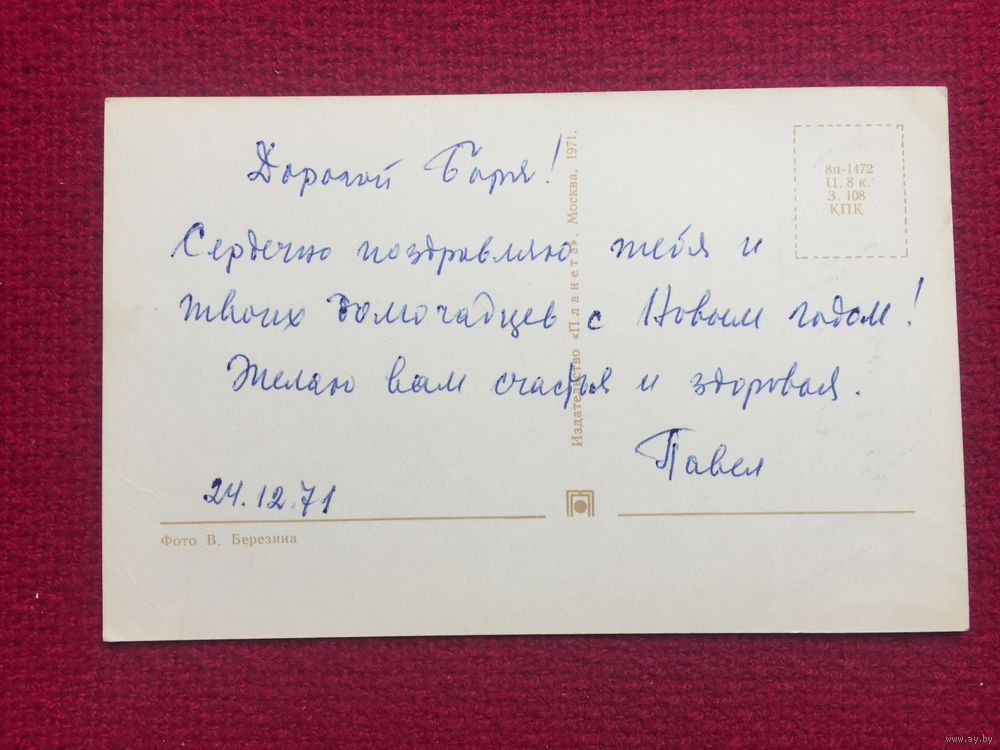 Дорогой Боря!
Сердечно поздравляю тебя и
твоих домочадцев с Новым годом!
Желаю вам счастья и здоровья.
Павел
24.12.71
Издательство «Планета». Москва, 1971.
8п-1472
Ц. 8 к.
З. 108
КПК
Фото В. Березина
www.ay.by